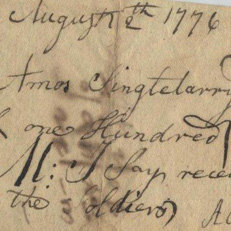 August 2th 1776
Amos Singletarry
one Hundred
M: I Say rece
the oldiers) A